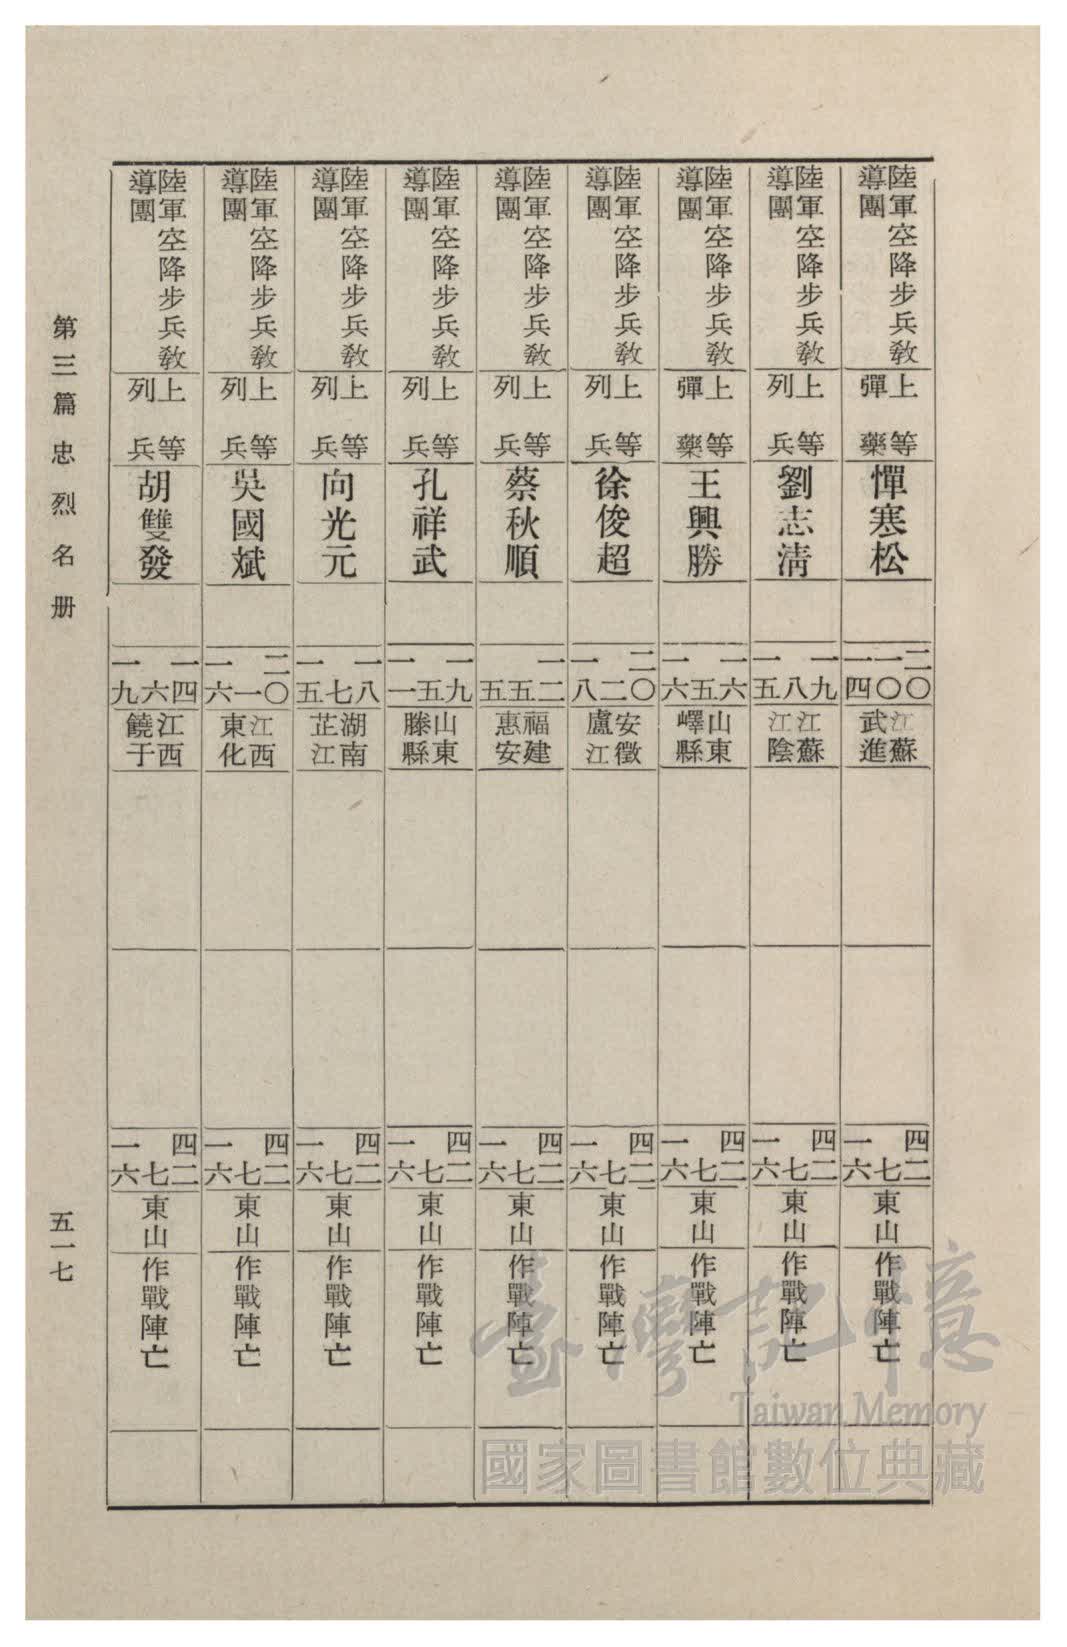 陸軍空降步兵教
導團
上等
彈藥
惲寒松
二〇
一〇
一四
江蘇
武進
四二
七
一六
東山
作戰陣亡
陸軍空降步兵教
導團
上等
列兵
劉志清
一九
八
一五
江蘇
江陰
四二
七
一六
東山
作戰陣亡
陸軍空降步兵教
導團
上等
彈藥
王興勝
一六
五
一六
山東
嶧縣
四二
七
一六
東山
作戰陣亡
陸軍空降步兵教
導團
上等
列兵
徐俊超
二〇
二
一八
安徽
盧江
四二
七
一六
東山
作戰陣亡
陸軍空降步兵教
導團
上等
列兵
蔡秋順
一二
五
五
福建
惠安
四二
七
一六
東山
作戰陣亡
陸軍空降步兵教
導團
上等
列兵
孔祥武
一九
五
一一
山東
滕縣
四二
七
一六
東山
作戰陣亡
陸軍空降步兵教
導團
上等
列兵
向光元
一八
七
一五
湖南
芷江
四二
七
一六
東山
作戰陣亡
陸軍空降步兵教
導團
上等
列兵
吳國斌
二〇
一
一六
江西
東化
四二
七
一六
東山
作戰陣亡
陸軍空降步兵教
導團
上等
列兵
胡雙發
一四
六
一九
江西
饒于
四二
七
一六
東山
作戰陣亡
第三篇 忠烈名册
五一七
臺灣記憶
Taiwan Memory
國家圖書館數位典藏